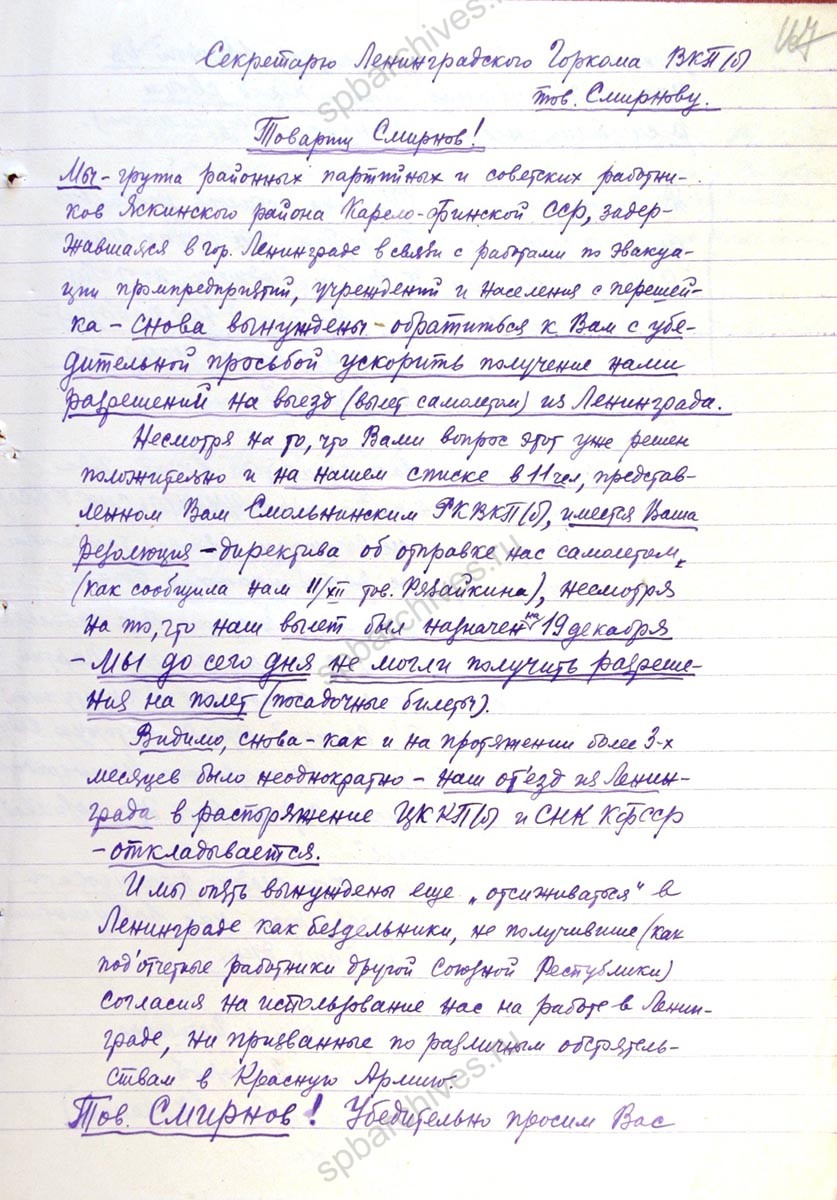 167
Секретарю Ленинградского Горкома ВКП(б)
тов. Смирнову.
Товарищ Смирнов!
Мы – группа районных партийных и советских работни-
ков Яскинского района Карело-Финской ССР, задер-
жавшаяся в гор. Ленинграде в связи с работами по эвакуа-
ции промпредприятий, учреждений и населения с перешей-
ка – снова вынуждены обратиться к Вам с убе-
дительной просьбой ускорить получение нами
разрешений на выезд (вылет самолетом) из Ленинграда.
Несмотря на то, что Вами вопрос этот уже решен
положительно и на нашем списке в 11 чел, представ-
ленном Вам Смольнинским РКВКП(б), имеется Ваша
резолюция – директива об отправке нас самолетом,
(как сообщила нам 11/XII тов. Рязайкина), несмотря
на то, что наш вылет был назначен на 19 декабря
– мы до сего дня не могли получить разреше-
ния на полет (посадочные билеты).
Видимо, снова – как и на протяжении более 3-х
месяцев было неоднократно – наш от'езд из Ленин-
града в распоряжение ЦК КП(б) и СНК КФССР
– откладывается.
И мы опять вынуждены еще „отсиживаться" в
Ленинграде как бездельники, не получившие (как
под'отчетные работники другой Союзной Республики)
согласия на использование нас на работе в Ленин-
граде, ни призванные по различным обстоятель-
ствам в Красную Армию.
Тов. Смирнов! Убедительно просим Вас
spbarchives.ru
spbarchives.ru
spbarchives.ru